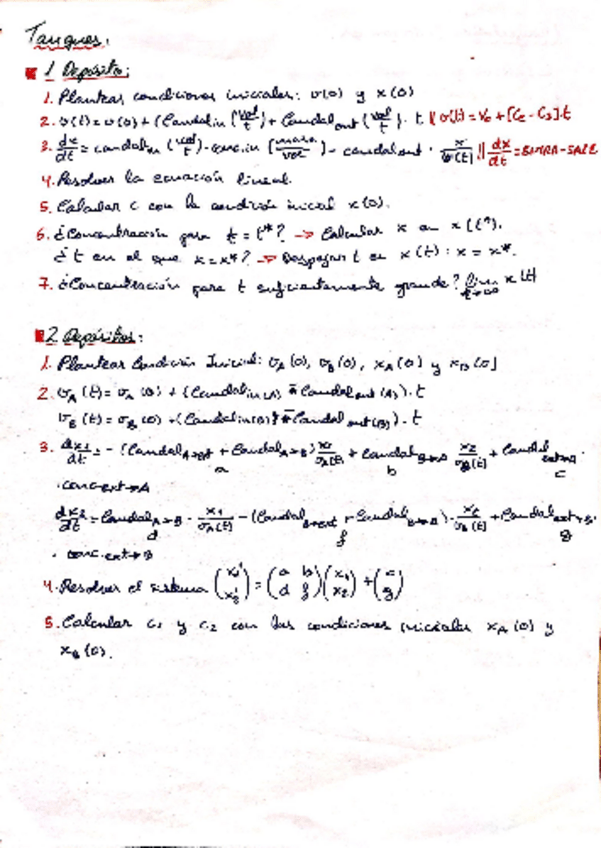 Tanques.
1 Depósito:
1. Plantear condiciones iniciales: v(0) y x(0)
2. v(t) = v(0) + (Caudal in (vol/t) + Caudal out (vol/t)) · t || v(t) = V₀ + [Ce - Cs]·t
3. dx/dt = caudal in (vol/t) · conc.in (masa/vol) - caudal out · x/v(t) || dx/dt = ENTRA - SALE
4. Resolver la ecuación lineal.
5. Calcular c con la condición inicial x(0).
6. ¿Concentración para t = t*? → Calcular x en x(t*).
¿t en el que x = x*? → Despejar t en x(t) : x = x*.
7. ¿Concentración para t suficientemente grande? lim t→∞ x(t)
2 Depósitos:
1. Plantear Condición Inicial: vA(0), vB(0), xA(0) y xB(0)
2. vA(t) = vA(0) + (Caudal in(A) - Caudal out(A)) · t
vB(t) = vB(0) + (Caudal in(B) - Caudal out(B)) · t
3. dx1/dt = - (Caudal A→ext + Caudal A→B) x1/vA(t) + Caudal B→A x2/vB(t) + Caudal ext→A ·
a b c
· conc ext→A
dx2/dt = Caudal A→B · x1/vA(t) - (Caudal B→ext + Caudal B→A) · x2/vB(t) + Caudal ext→B ·
d f g
· conc.ext→B
4. Resolver el sistema (x1' x2') = (a b d f)(x1 x2) + (c g)
5. Calcular c1 y c2 con las condiciones iniciales xA(0) y
xB(0).